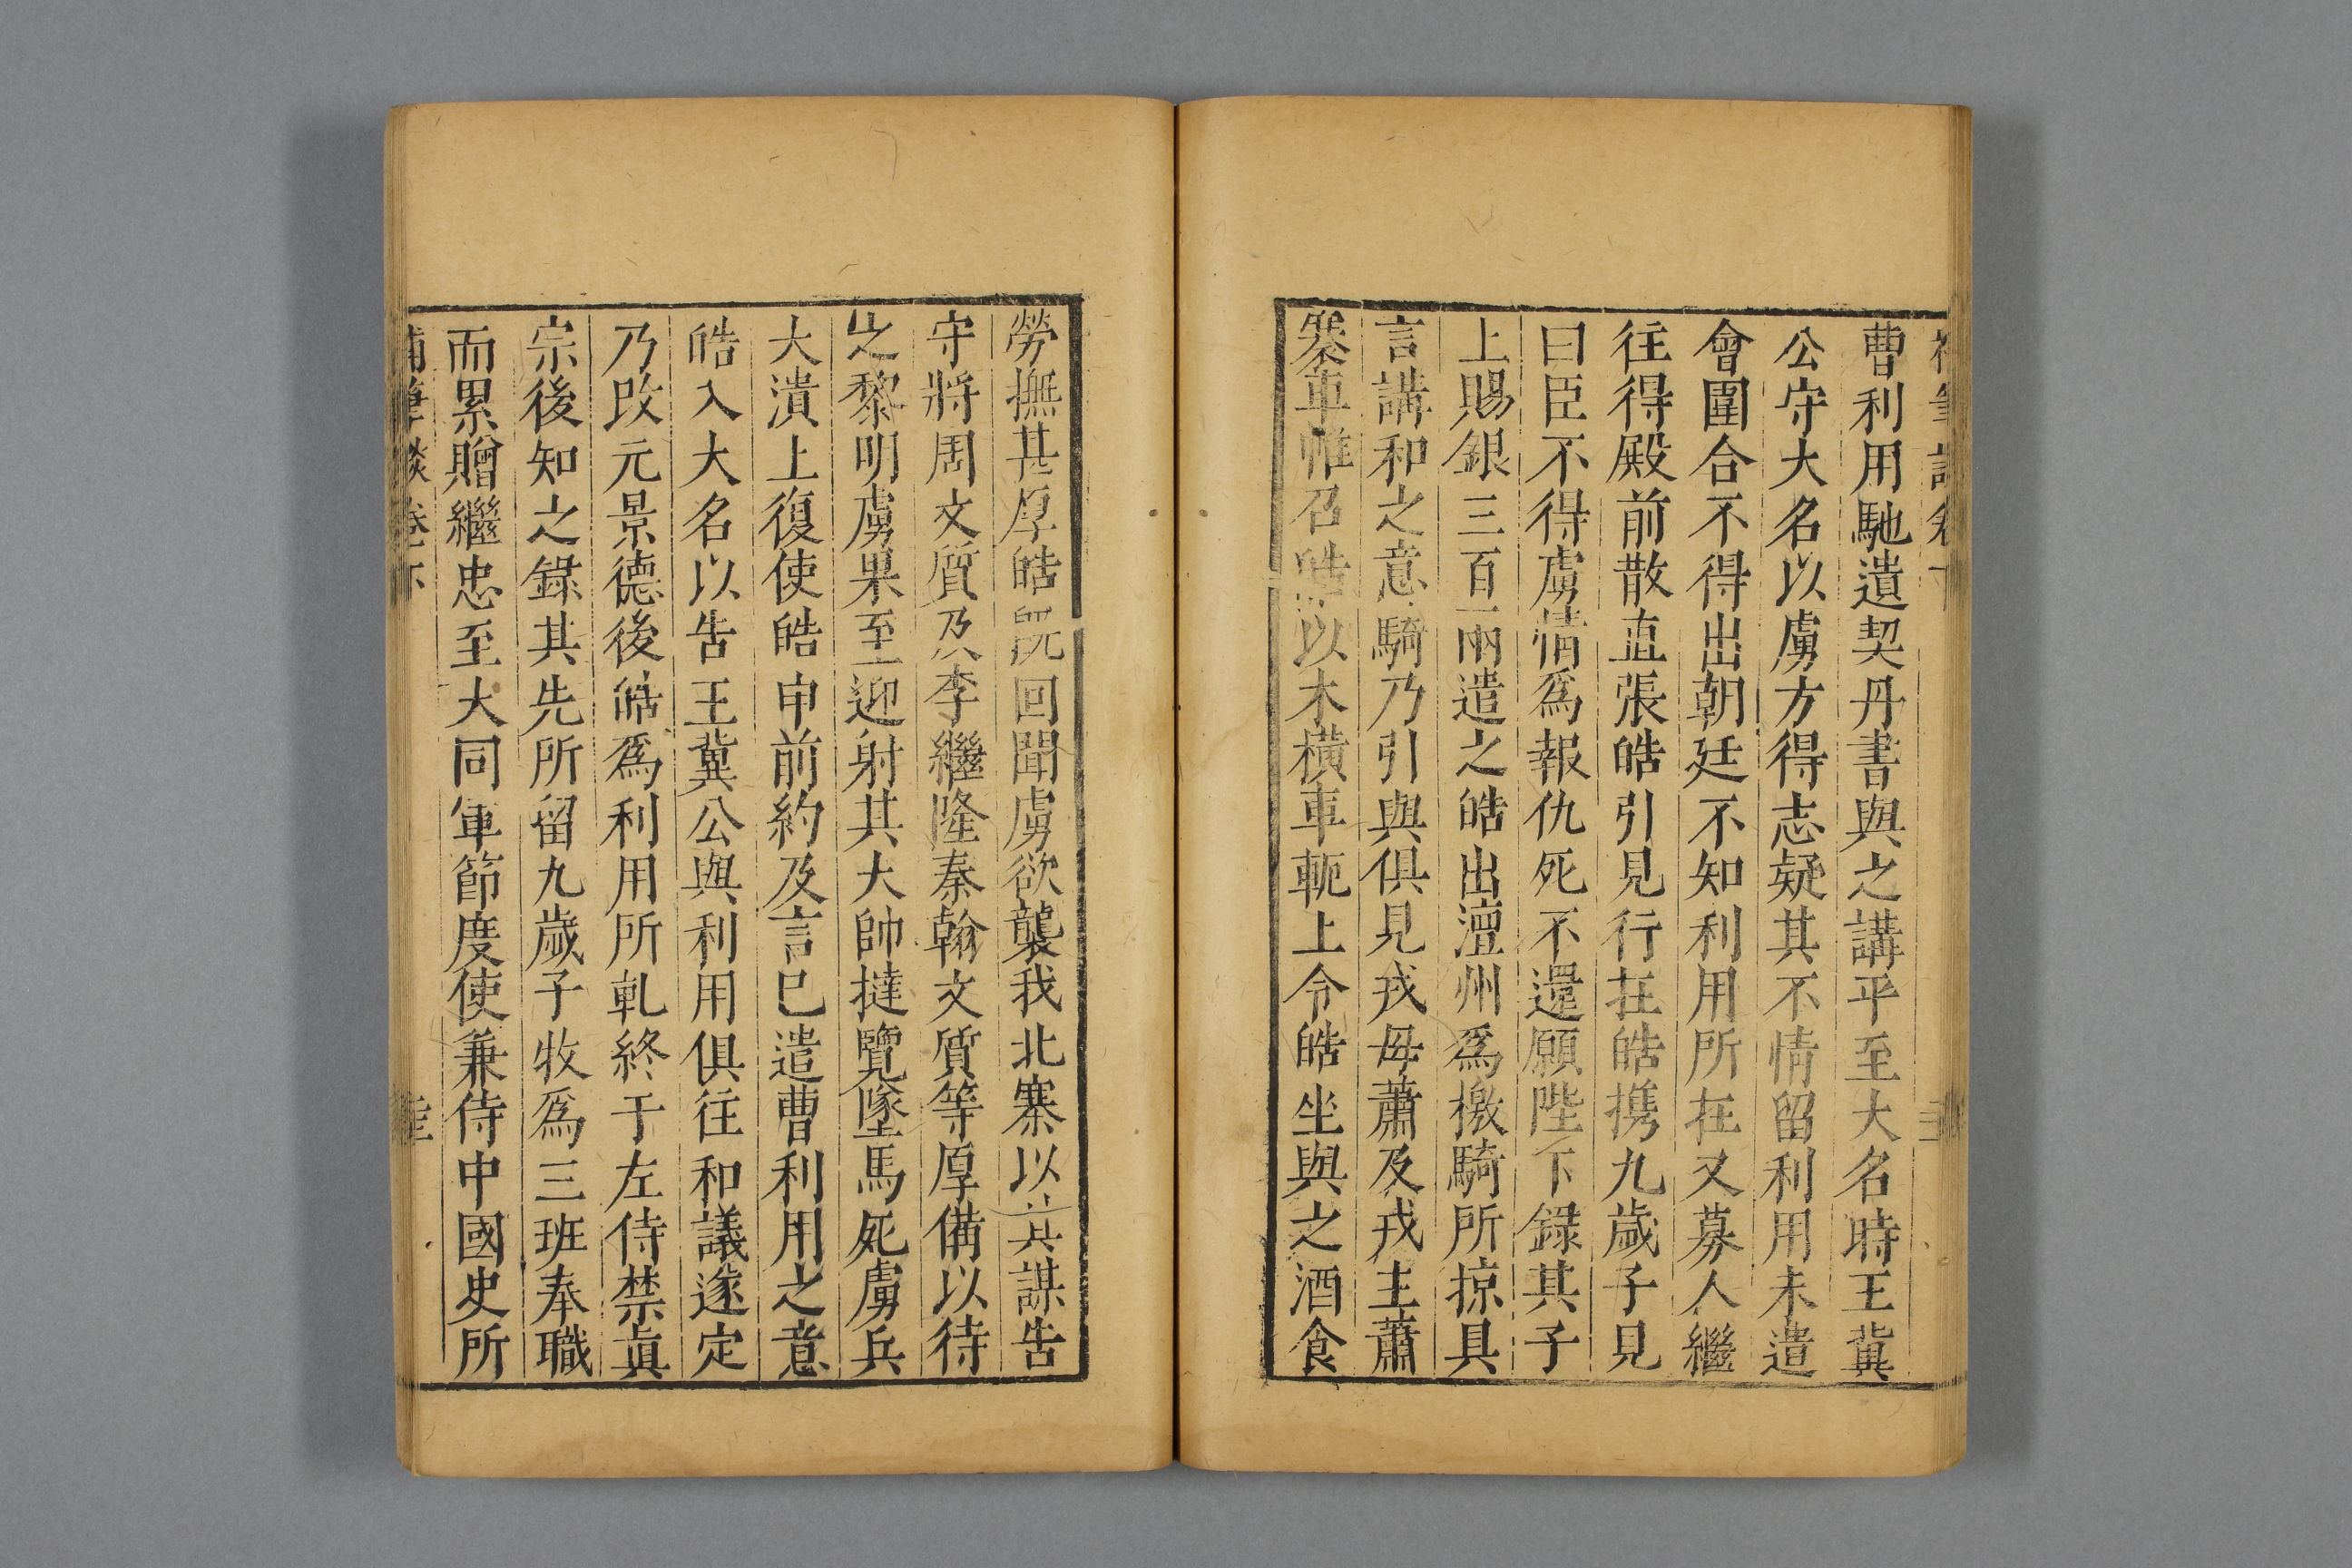 曹利用馳遺契丹書與之講平至大名時王冀
公守大名以虜方得志疑其不情留利用未遣
會圍合不得出朝廷不知利用所在又募人繼
往得殿前散直張皓引見行在皓携九歲子見
曰臣不得虜情爲報仇死不還願陛下錄其子
上賜銀三百兩遣之皓出澶州爲檄騎所掠具
言講和之意騎乃引與俱見戎毋蕭及戎主蕭
搴車帷召皓以木橫車軛上令皓坐與之酒食
勞撫甚厚皓既回聞虜欲襲我北寨以其謀告
守將周文質及李繼隆秦翰文質等厚備以待
之黎明虜果至迎射其大帥撻覽墜馬死虜兵
大潰上復使皓申前約及言已遣曹利用之意
皓入大名以告王冀公與利用俱往和議遂定
乃改元景德後皓爲利用所軋終于左侍禁眞
宗後知之錄其先所留九歲子牧爲三班奉職
而累贈繼忠至大同軍節度使兼侍中國史所
補筆談卷下